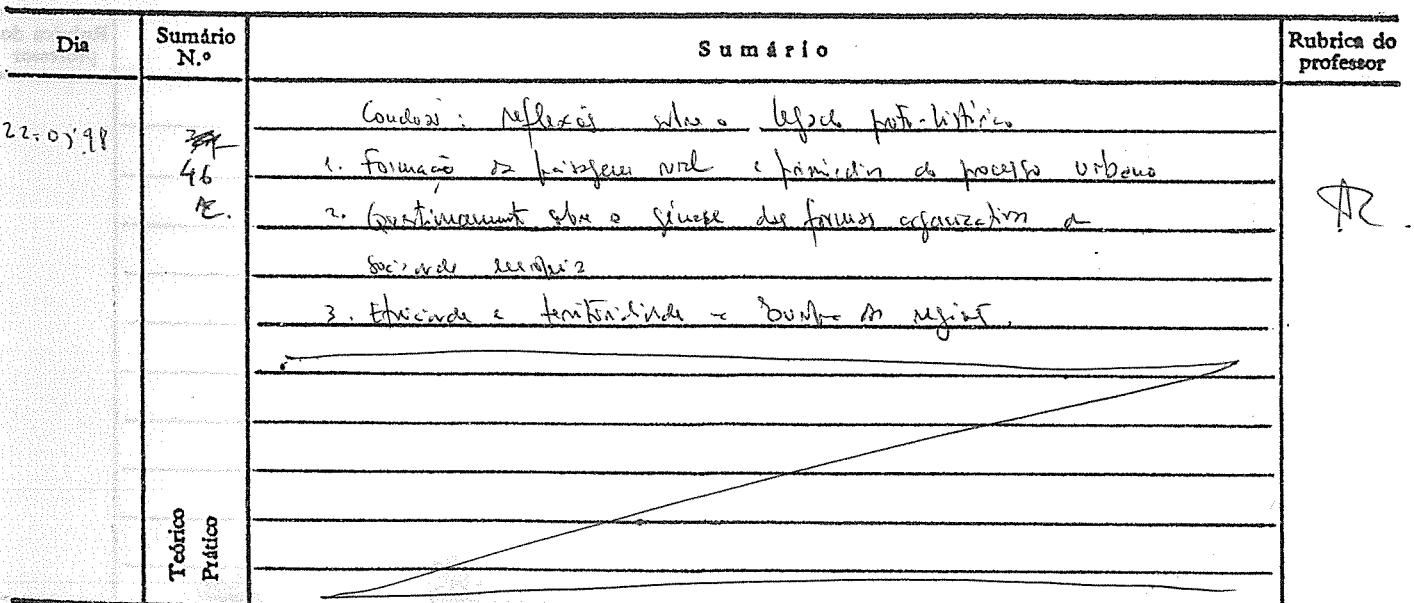 Dia
Sumário N.º
Sumário
Rubrica do professor
22.05'98
46
Conclusão: reflexões sobre o legado proto-histórico
1. Formação da paisagem rural e primórdios do processo urbano
2. Questionamento sobre a génese das formas organizativas da
sociedade
3. Etnicidade e territorialidade
Teórico
Prático